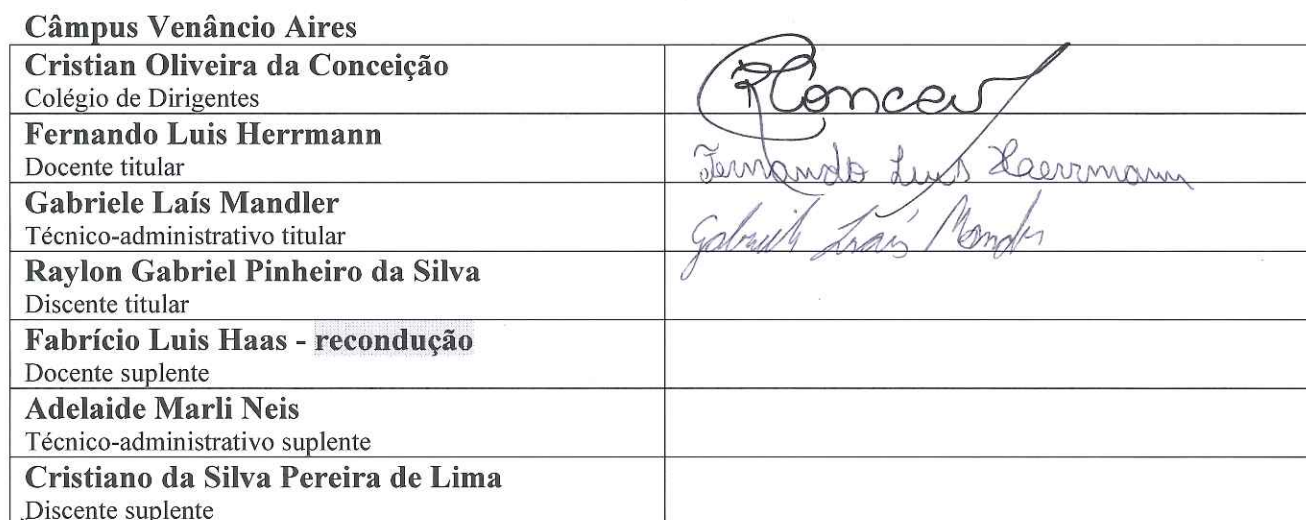 Câmpus Venâncio Aires
Cristian Oliveira da Conceição
Colégio de Dirigentes
Fernando Luis Herrmann
Docente titular
Fernando Luis Haerrmann
Gabriele Laís Mandler
Técnico-administrativo titular
Gabriele Laís Mandler
Raylon Gabriel Pinheiro da Silva
Discente titular
Fabrício Luis Haas - recondução
Docente suplente
Adelaide Marli Neis
Técnico-administrativo suplente
Cristiano da Silva Pereira de Lima
Discente suplente